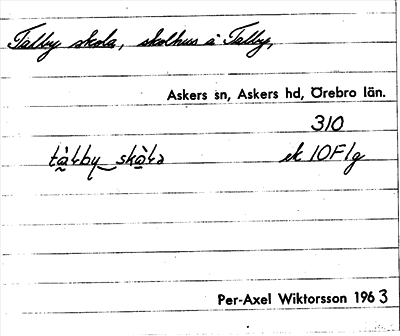 Talby skola, skolhus å Talby,
Askers sn, Askers hd, Örebro län.
310
tà̰ɫby‿skò̱ɫa ek 10F1g
Per-Axel Wiktorsson 1963